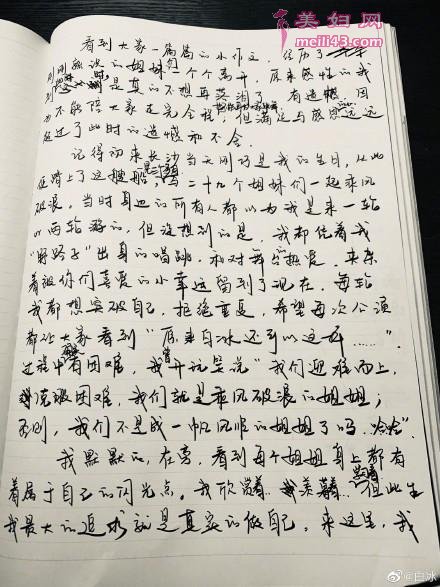 美妇网
meili43.com
看到大家一篇篇的小作文,经历了
刚刚熟识的姐妹们一个个离开,原来感性的我
是真的不想再哭泪了,有遗憾,因
为不能陪大家走完全程,但满足与感恩远远
超过了此时的遗憾和不舍
记得初来长沙当天刚巧是我的生日,从此
便踏上了这艘船,与二十九个姐妹们一起乘风
破浪,当时身边的所有人都以为我是来一轮
两轮游的,但没想到的是,我却凭着我
"野路子"出身的唱跳,和对舞台热爱,来乘
着被你们喜爱的小幸运留到了现在,每轮
我都想突破自己,拒绝重复,希望每次公演
都让大家看到"原来白冰还可以这样……"
过程中有困难,我曾开玩笑说"我们迎难而上,
克服困难,我们就是乘风破浪的姐姐;
否则,我们不是成一帆风顺的姐姐了吗,哈哈".
我默默的,在旁,看到每个姐姐身上都有
着属于自己的闪光点,我欣赏着,羡慕着…但此生
我最大的追求就是真实的做自己,来这里,我
@白冰